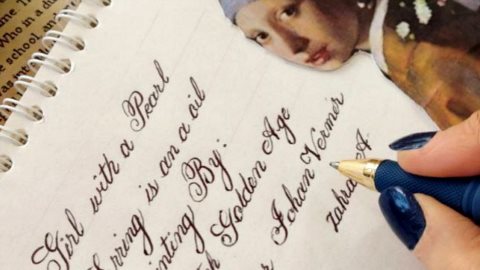 Who in a
school, and
Girl with a Pearl
rring is an a oil
inting By:
Golden Age
Johan Vermer
zahra A